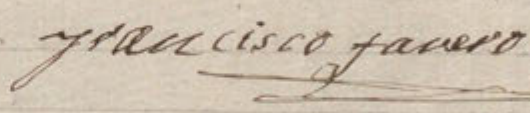 Francisco Favero